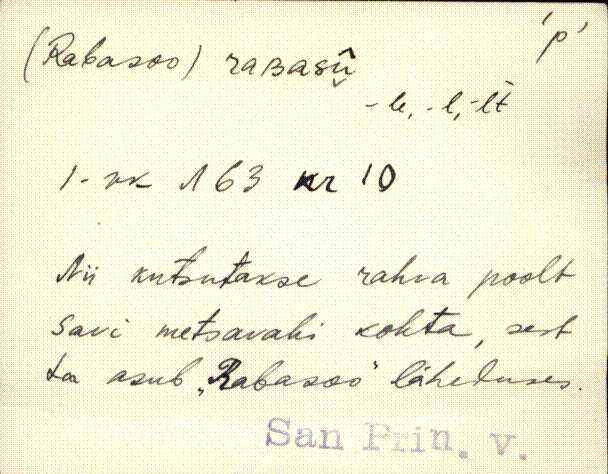 'p'
(Rabasoo) raʙasū̬̂
-le, -l, -lt
1-vk Λ 63 nr 10
Nii kutsutakse rahva poolt
Savi metsavahi kohta, sest
ta asub „Rabasoo" läheduses.
San Prin. v.